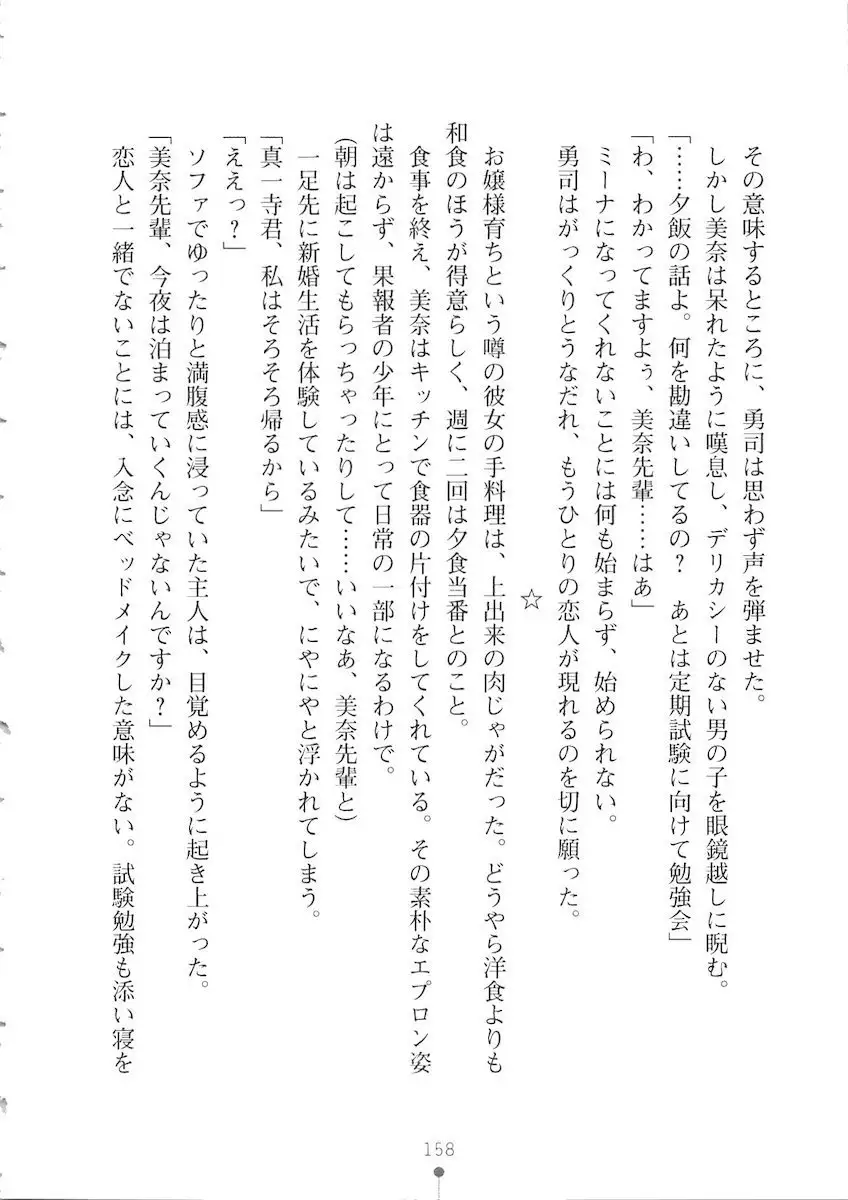 その意味するところに、勇司は思わず声を弾ませた。
しかし美奈は呆れたように嘆息し、デリカシーのない男の子を眼鏡越しに睨む。
「……夕飯の話よ。何を勘違いしてるの？　あとは定期試験に向けて勉強会」
「わ、わかってますよぅ、美奈先輩……はぁ」
ミーナになってくれないことには何も始まらず、始められない。
勇司はがっくりとうなだれ、もうひとりの恋人が現れるのを切に願った。
☆
お嬢様育ちという噂の彼女の手料理は、上出来の肉じゃがだった。どうやら洋食よりも
和食のほうが得意らしく、週に二回は夕食当番とのこと。
食事を終え、美奈はキッチンで食器の片付けをしてくれている。その素朴なエプロン姿
は遠からず、果報者の少年にとって日常の一部になるわけで。
(朝は起こしてもらっちゃったりして……いいなぁ、美奈先輩と)
一足先に新婚生活を体験しているみたいで、にやにやと浮かれてしまう。
「真一寺君、私はそろそろ帰るから」
「ええっ？」
ソファでゆったりと満腹感に浸っていた主人は、目覚めるように起き上がった。
「美奈先輩、今夜は泊まっていくんじゃないんですか？」
恋人と一緒でないことには、入念にベッドメイクした意味がない。試験勉強も添い寝を
158